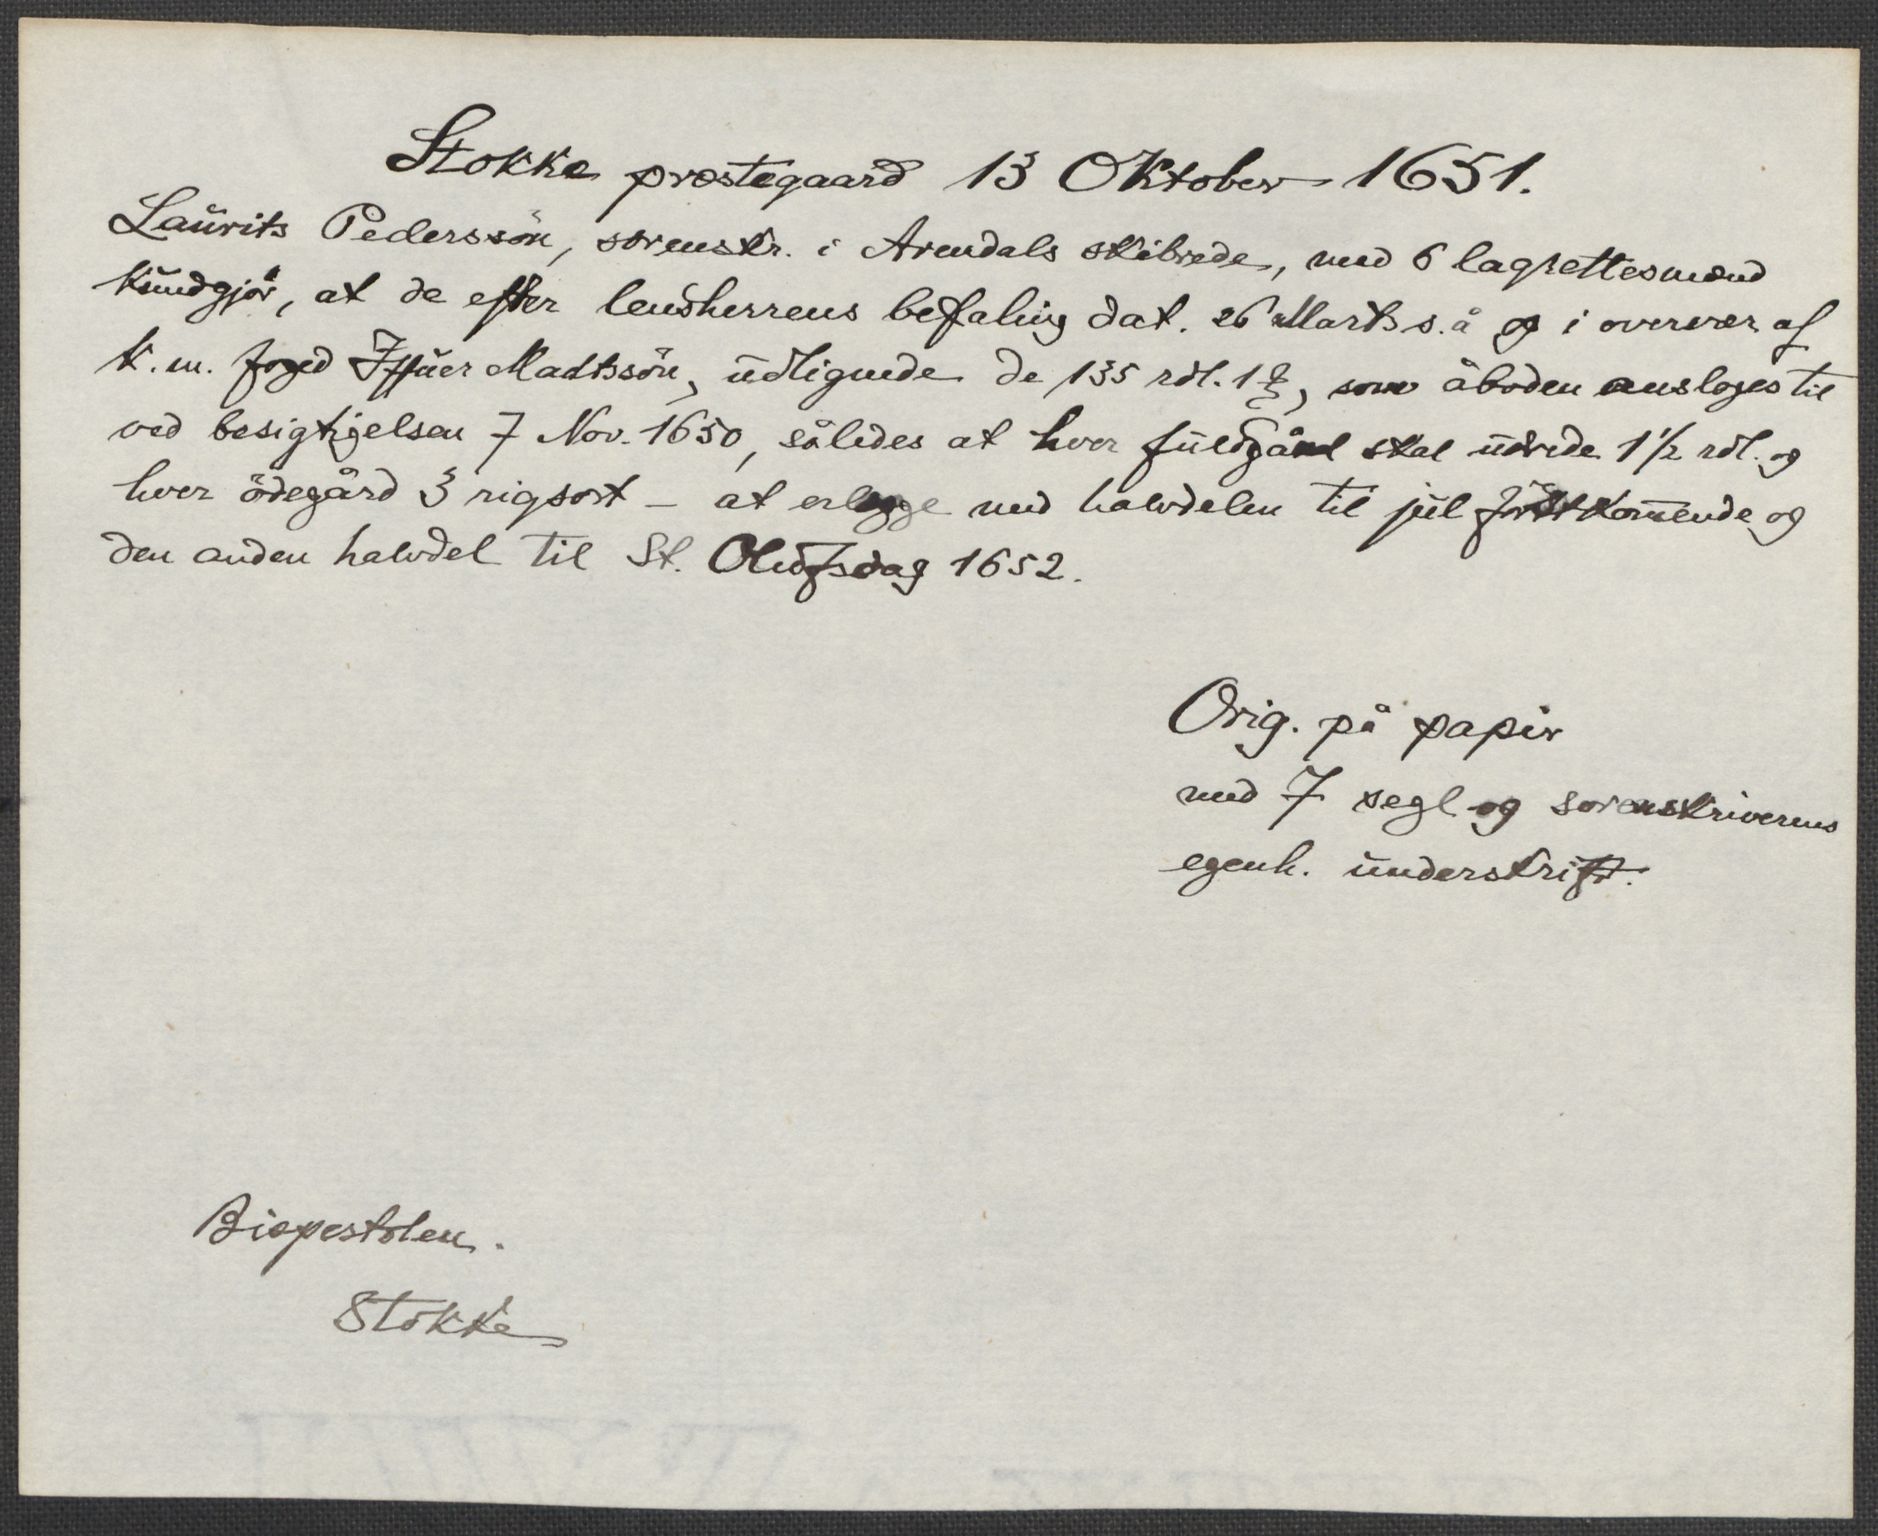 Stokke præstegaard 13 Oktober 1651.
Laurits Pederssön, sorenskr. i Arendals skibrede, med 6 lagrettesmænd
kundgjör, at de efter lensherrens befaling dat. 26 Marts s. å og i overvær af
k. m. foged Iffuer Madtssön, udlignede de 135 rdl. 1 , som åboden ansloges til
ved besigtigelsen 7 Nov. 1650, således at hver fuldgård skal udrede 1 1/2 rdl. og
hver ödegård 3 rigsort - at erlægge med halvdelen til jul förstkommende og
den anden halvdel til St. Olufsdag 1652.
Orig. på papir
med 7 segl og sorenskriverens
egenh. underskrift.
Bispestolen.
Stokke